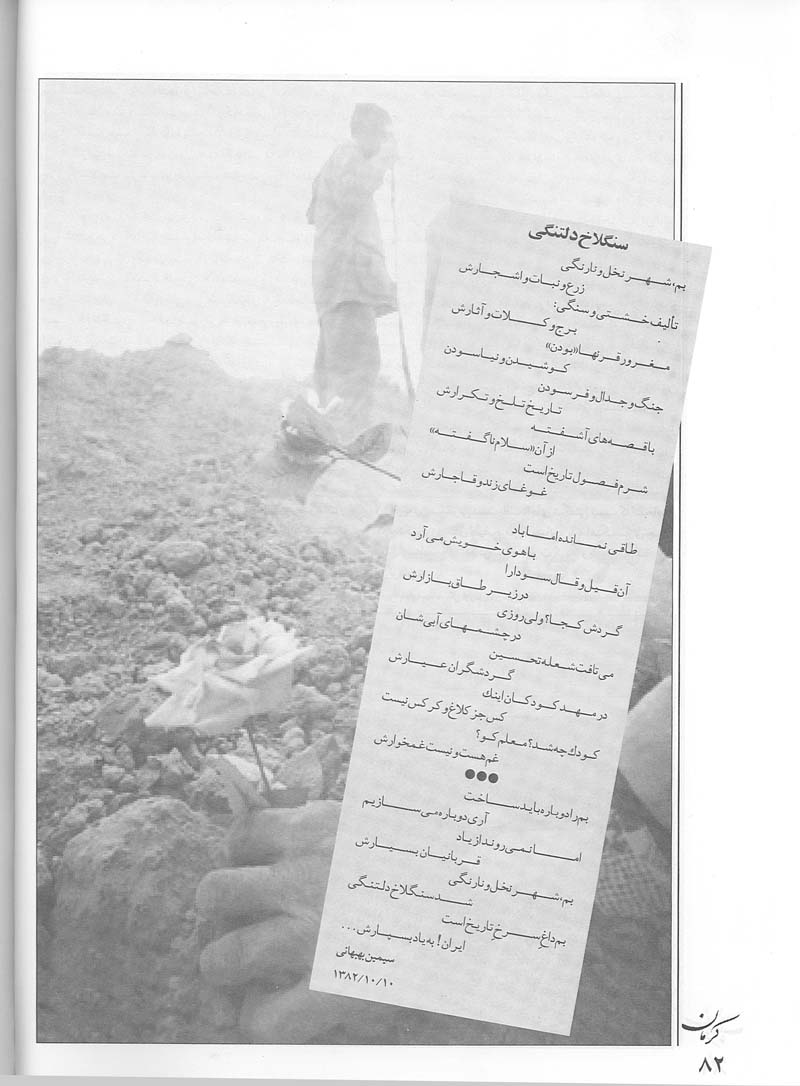 سنگلاخ دلتنگی
بم، شهر نخل و نارنگی
زرع و نبات و اشجارش
تألیف خشتی و سنگی:
برج و کلات و آثارش
مغرور قرنها «بودن»
کوشیدن و نیاسودن
جنگ و جدال و فرسودن
تاریخ تلخ و تکرارش
با قصه‌های آشفته
از آن «سلام ناگفته»
شرم فصول تاریخ است
غوغای زند و قاجارش
طاقی نمانده اما باد
با هوی خویش می‌آرد
آن قیل و قال سودا را
در زیر طاق بازارش
گردش کجا؟ ولی روزی
در چشمهای آبی‌شان
می‌تافت شعله تحسین
گردشگران عیارش
در مهد کودکان اینك
کس جز کلاغ و کرکس نیست
کودك چه شد؟ معلم کو؟
غم هست و نیست غمخوارش
●●●
بم را دوباره باید ساخت
آری دوباره می‌سازیم
اما نمی‌روند از یاد
قربانیان بسیارش
بم، شهر نخل و نارنگی
شد سنگلاخ دلتنگی
بم داغِ سرخِ تاریخ است
ایران! به یاد بسپارش...
سیمین بهبهانی
۱۳۸۲/۱۰/۱۰
کرمان
۸۲